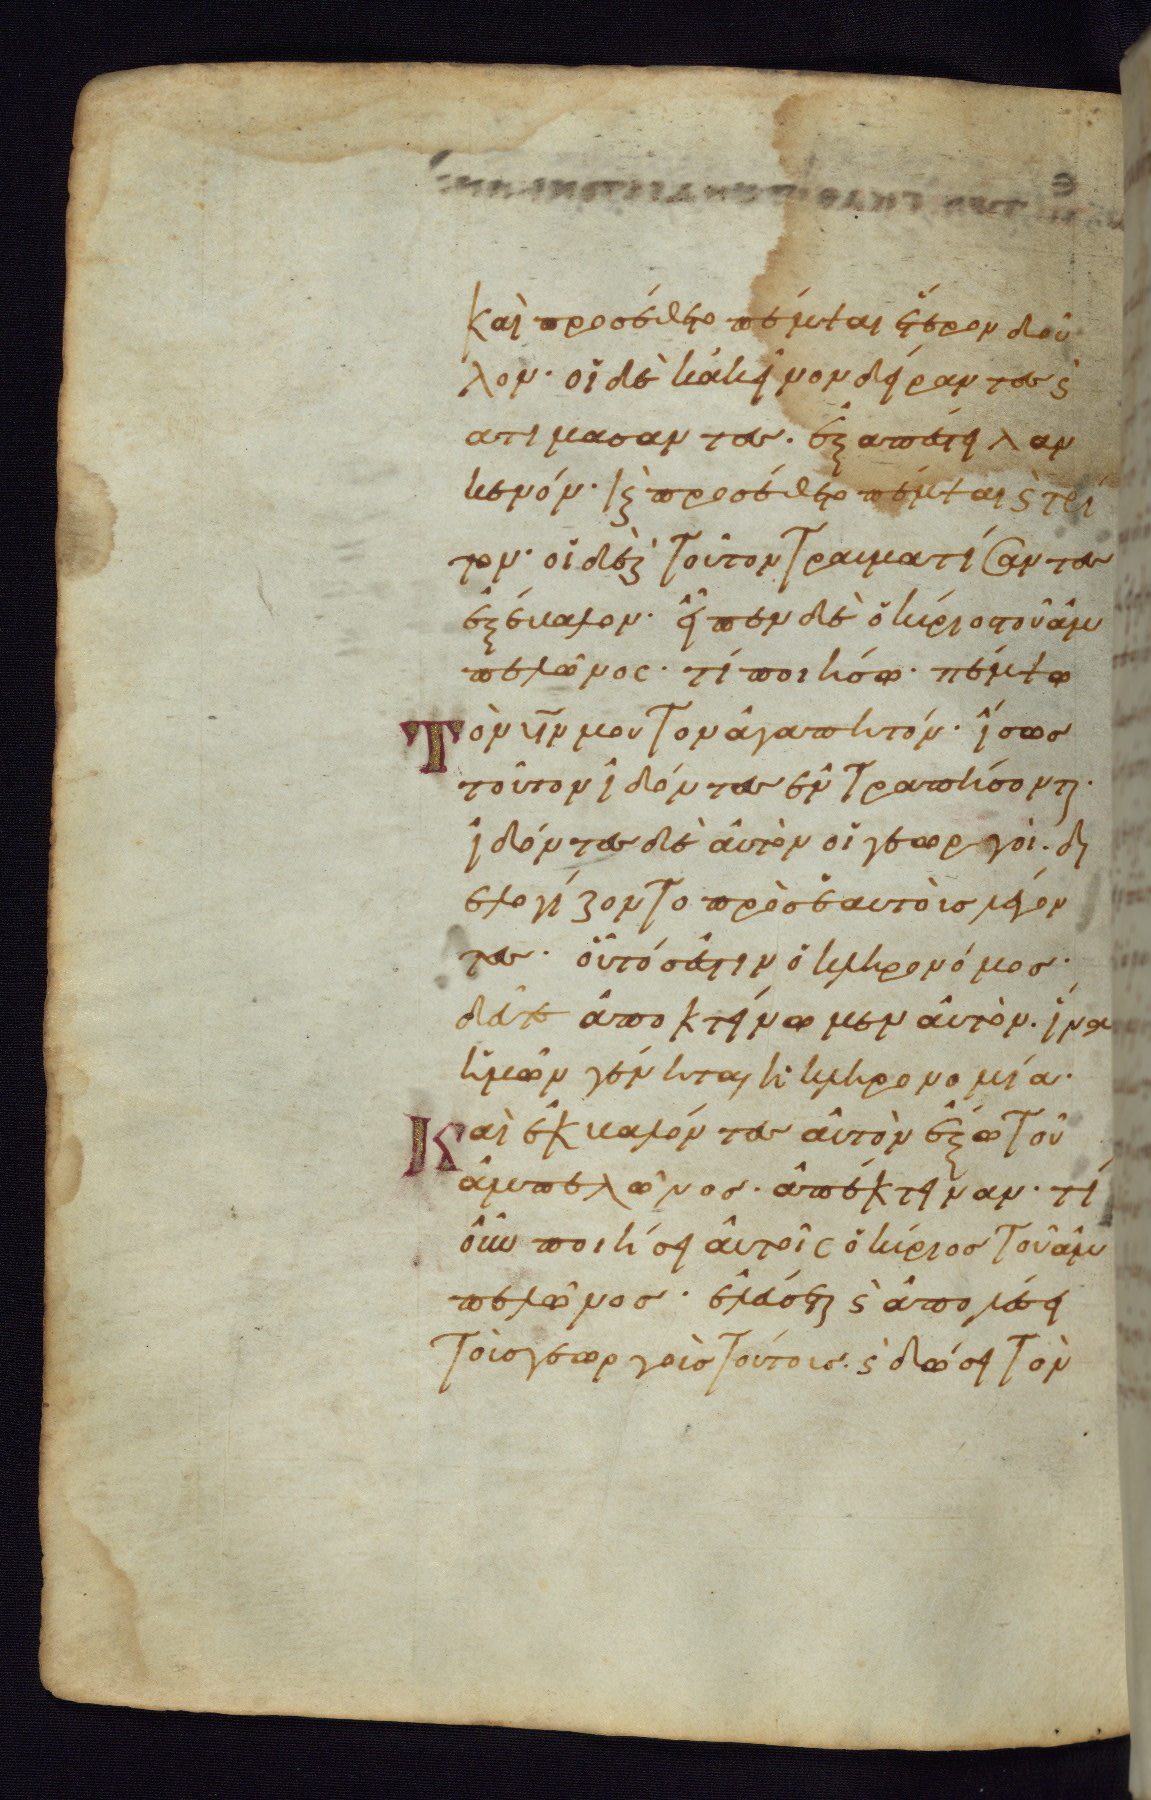 Καὶ προσέθετο πέμψαι ἕτερον δοῦ
λον· οἱ δὲ κἀκεῖνον δείραντες ϗ
ἀτιμάσαντες· ἐξαπέστειλαν
κενόν· ϗ προσέθετο πέμψαι ϗ τρί
τον· οἱ δὲ ϗ τοῦτον τραυματίσαντες
ἐξέβαλον· εἶπεν δὲ ὁ κύριος τοῦ ἀμ
πελῶνος· τί ποιήσω· πέμψω
Τὸν υἱόν μου τὸν ἀγαπητόν· ἴσως
τοῦτον ἰδόντες ἐντραπήσονται·
ἰδόντες δὲ αὐτὸν οἱ γεωργοὶ· δι
ελογίζοντο πρὸς ἑαυτοὺς λέγον
τες· οὗτός ἐστιν ὁ κληρονόμος·
δεῦτε ἀποκτείνωμεν αὐτὸν· ἵνα
ἡμῶν γένηται ἡ κληρονομία·
Καὶ ἐκβαλόντες αὐτὸν ἔξω τοῦ
ἀμπελῶνος· ἀπέκτειναν· τί
οὖν ποιήσει αὐτοῖς ὁ κύριος τοῦ ἀμ
πελῶνος· ἐλεύσεται ϗ ἀπολέσει
τοὺς γεωργοὺς τούτους· ϗ δώσει τὸν